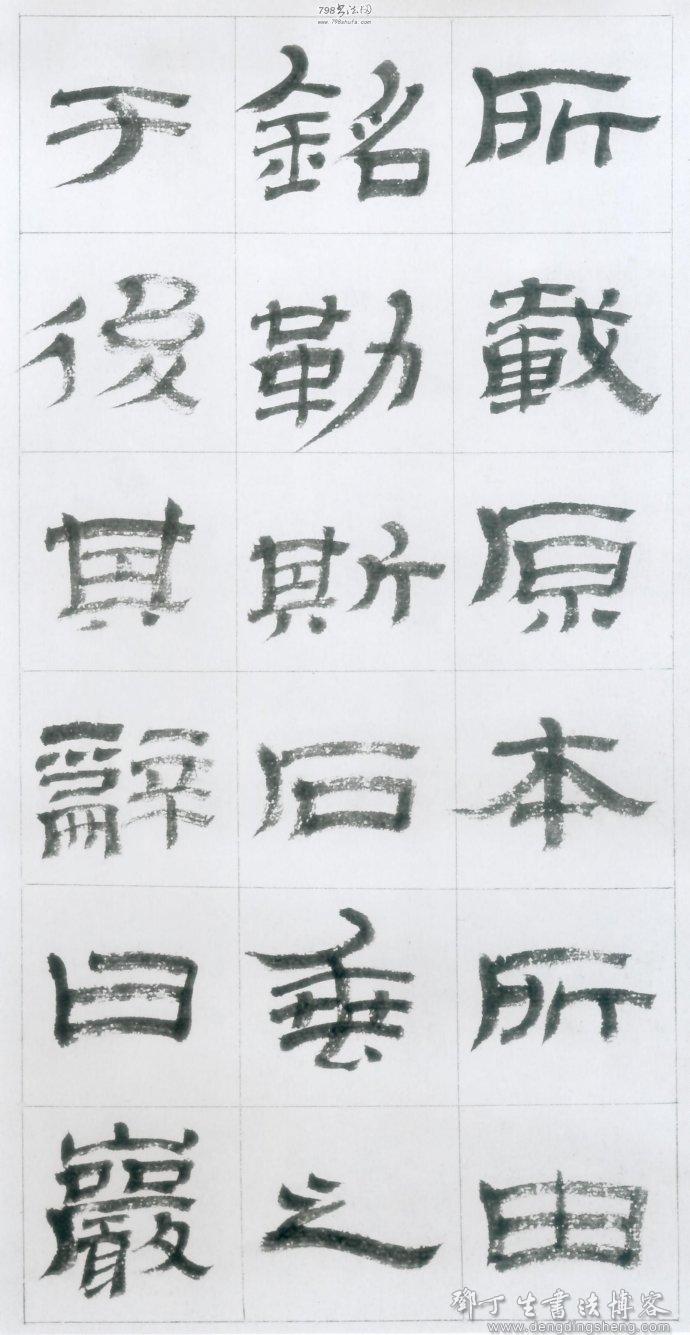 798书法网
www.798shufa.com
所載原本所由
銘勒斯石垂之
于後其辭曰巖
鄧丁生書法博客
www.dengdingsheng.com